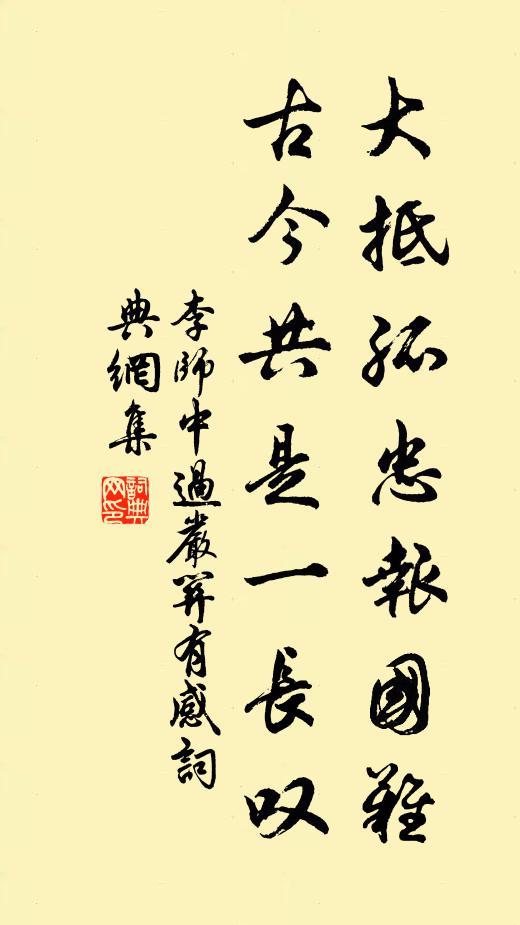 大抵孤忠報國難
古今共是一長叹
李師中過嚴關有感詞
典網集
詞典网印